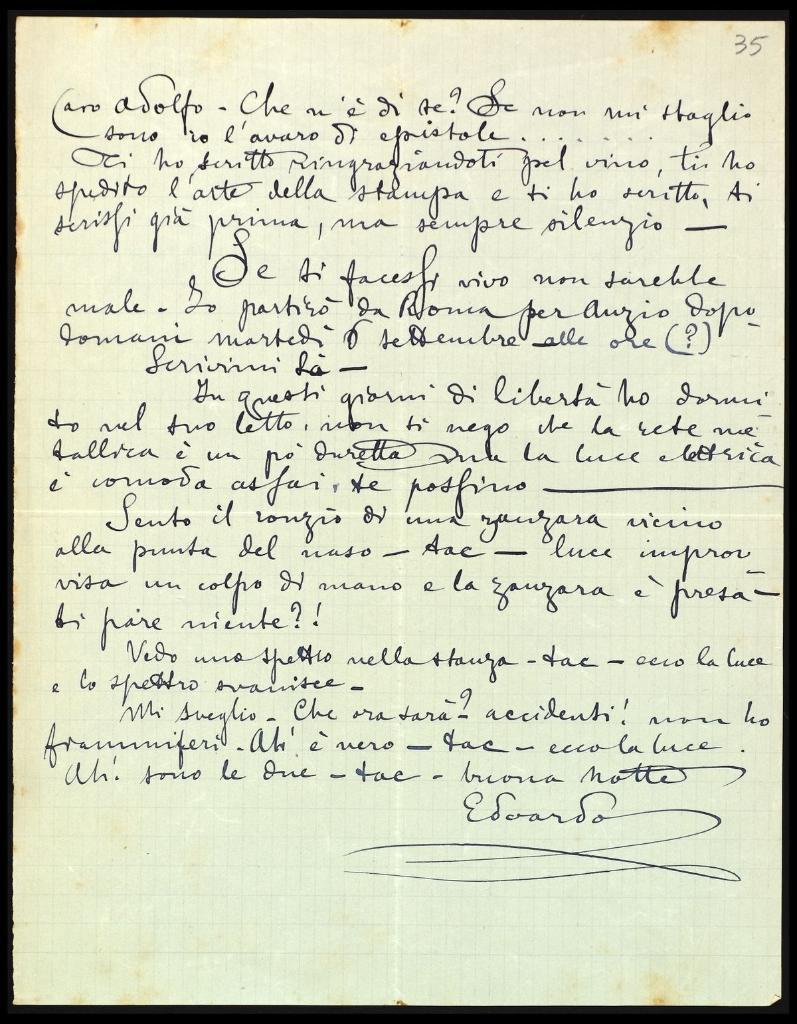 35
Caro Adolfo - Che n'è di te? Se non mi sbaglio
sono io l'avaro di epistole . . . . . . .
Ti ho scritto ringraziandoti pel vino, ti ho
spedito l'arte della stampa e ti ho scritto, ti
scrissi già prima, ma sempre silenzio —
Se ti facessi vivo non sarebbe
male - Io partirò da Roma per Anzio dopo
domani martedì 6 settembre alle ore (?)
Scrivimi là —
In questi giorni di libertà ho dormi
to nel tuo letto, non ti nego che la rete me
tallica è un pò duretta ma la luce elettrica
è comoda assai, te possino —
Sento il ronzio di una zanzara vicino
alla punta del naso — tac — luce improv
visa un colpo di mano e la zanzara è presa —
ti pare niente?!
Vedo uno spettro nella stanza - tac - ecco la luce
e lo spettro svanisce -
Mi sveglio - Che ora sarà? - accidenti! non ho
frammiferi - Ah! è vero - tac - ecco la luce.
Ah! sono le due - tac - buona notte
Edoardo